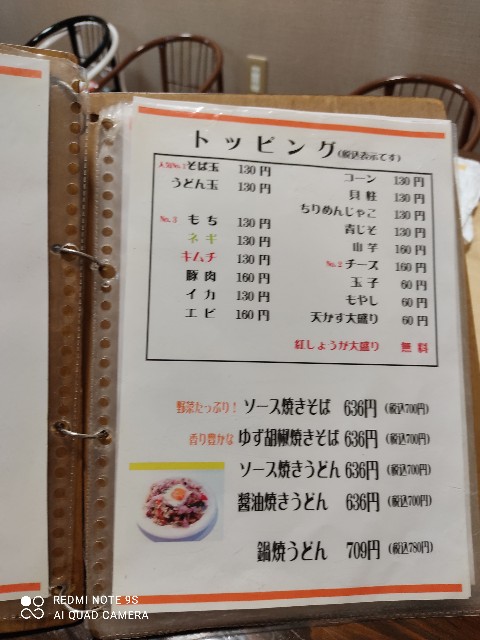 トッピング(税込表示です)
人気No.1 そば玉 130円
うどん玉 130円
No.3 もち 130円
ネギ 130円
キムチ 130円
豚肉 160円
イカ 130円
エビ 160円
コーン 130円
貝柱 130円
ちりめんじゃこ 130円
青じそ 130円
山芋 160円
No.2 チーズ 160円
玉子 60円
もやし 60円
天かす大盛り 60円
紅しょうが大盛り 無料
野菜たっぷり! ソース焼きそば 636円 (税込700円)
香り豊かな ゆず胡椒焼きそば 636円 (税込700円)
ソース焼きうどん 636円 (税込700円)
醤油焼きうどん 636円 (税込700円)
鍋焼うどん 709円 (税込780円)
REDMI NOTE 9S
AI QUAD CAMERA